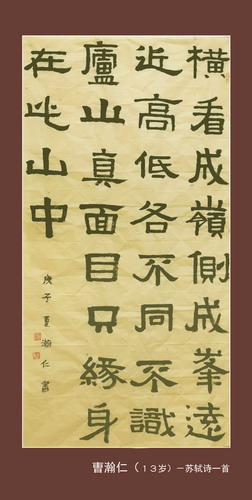 橫看成嶺側成峯遠
近高低各不同不識
廬山真面目只緣身
在此山中
庚子夏瀚仁書
曹瀚仁（13岁）—苏轼诗一首